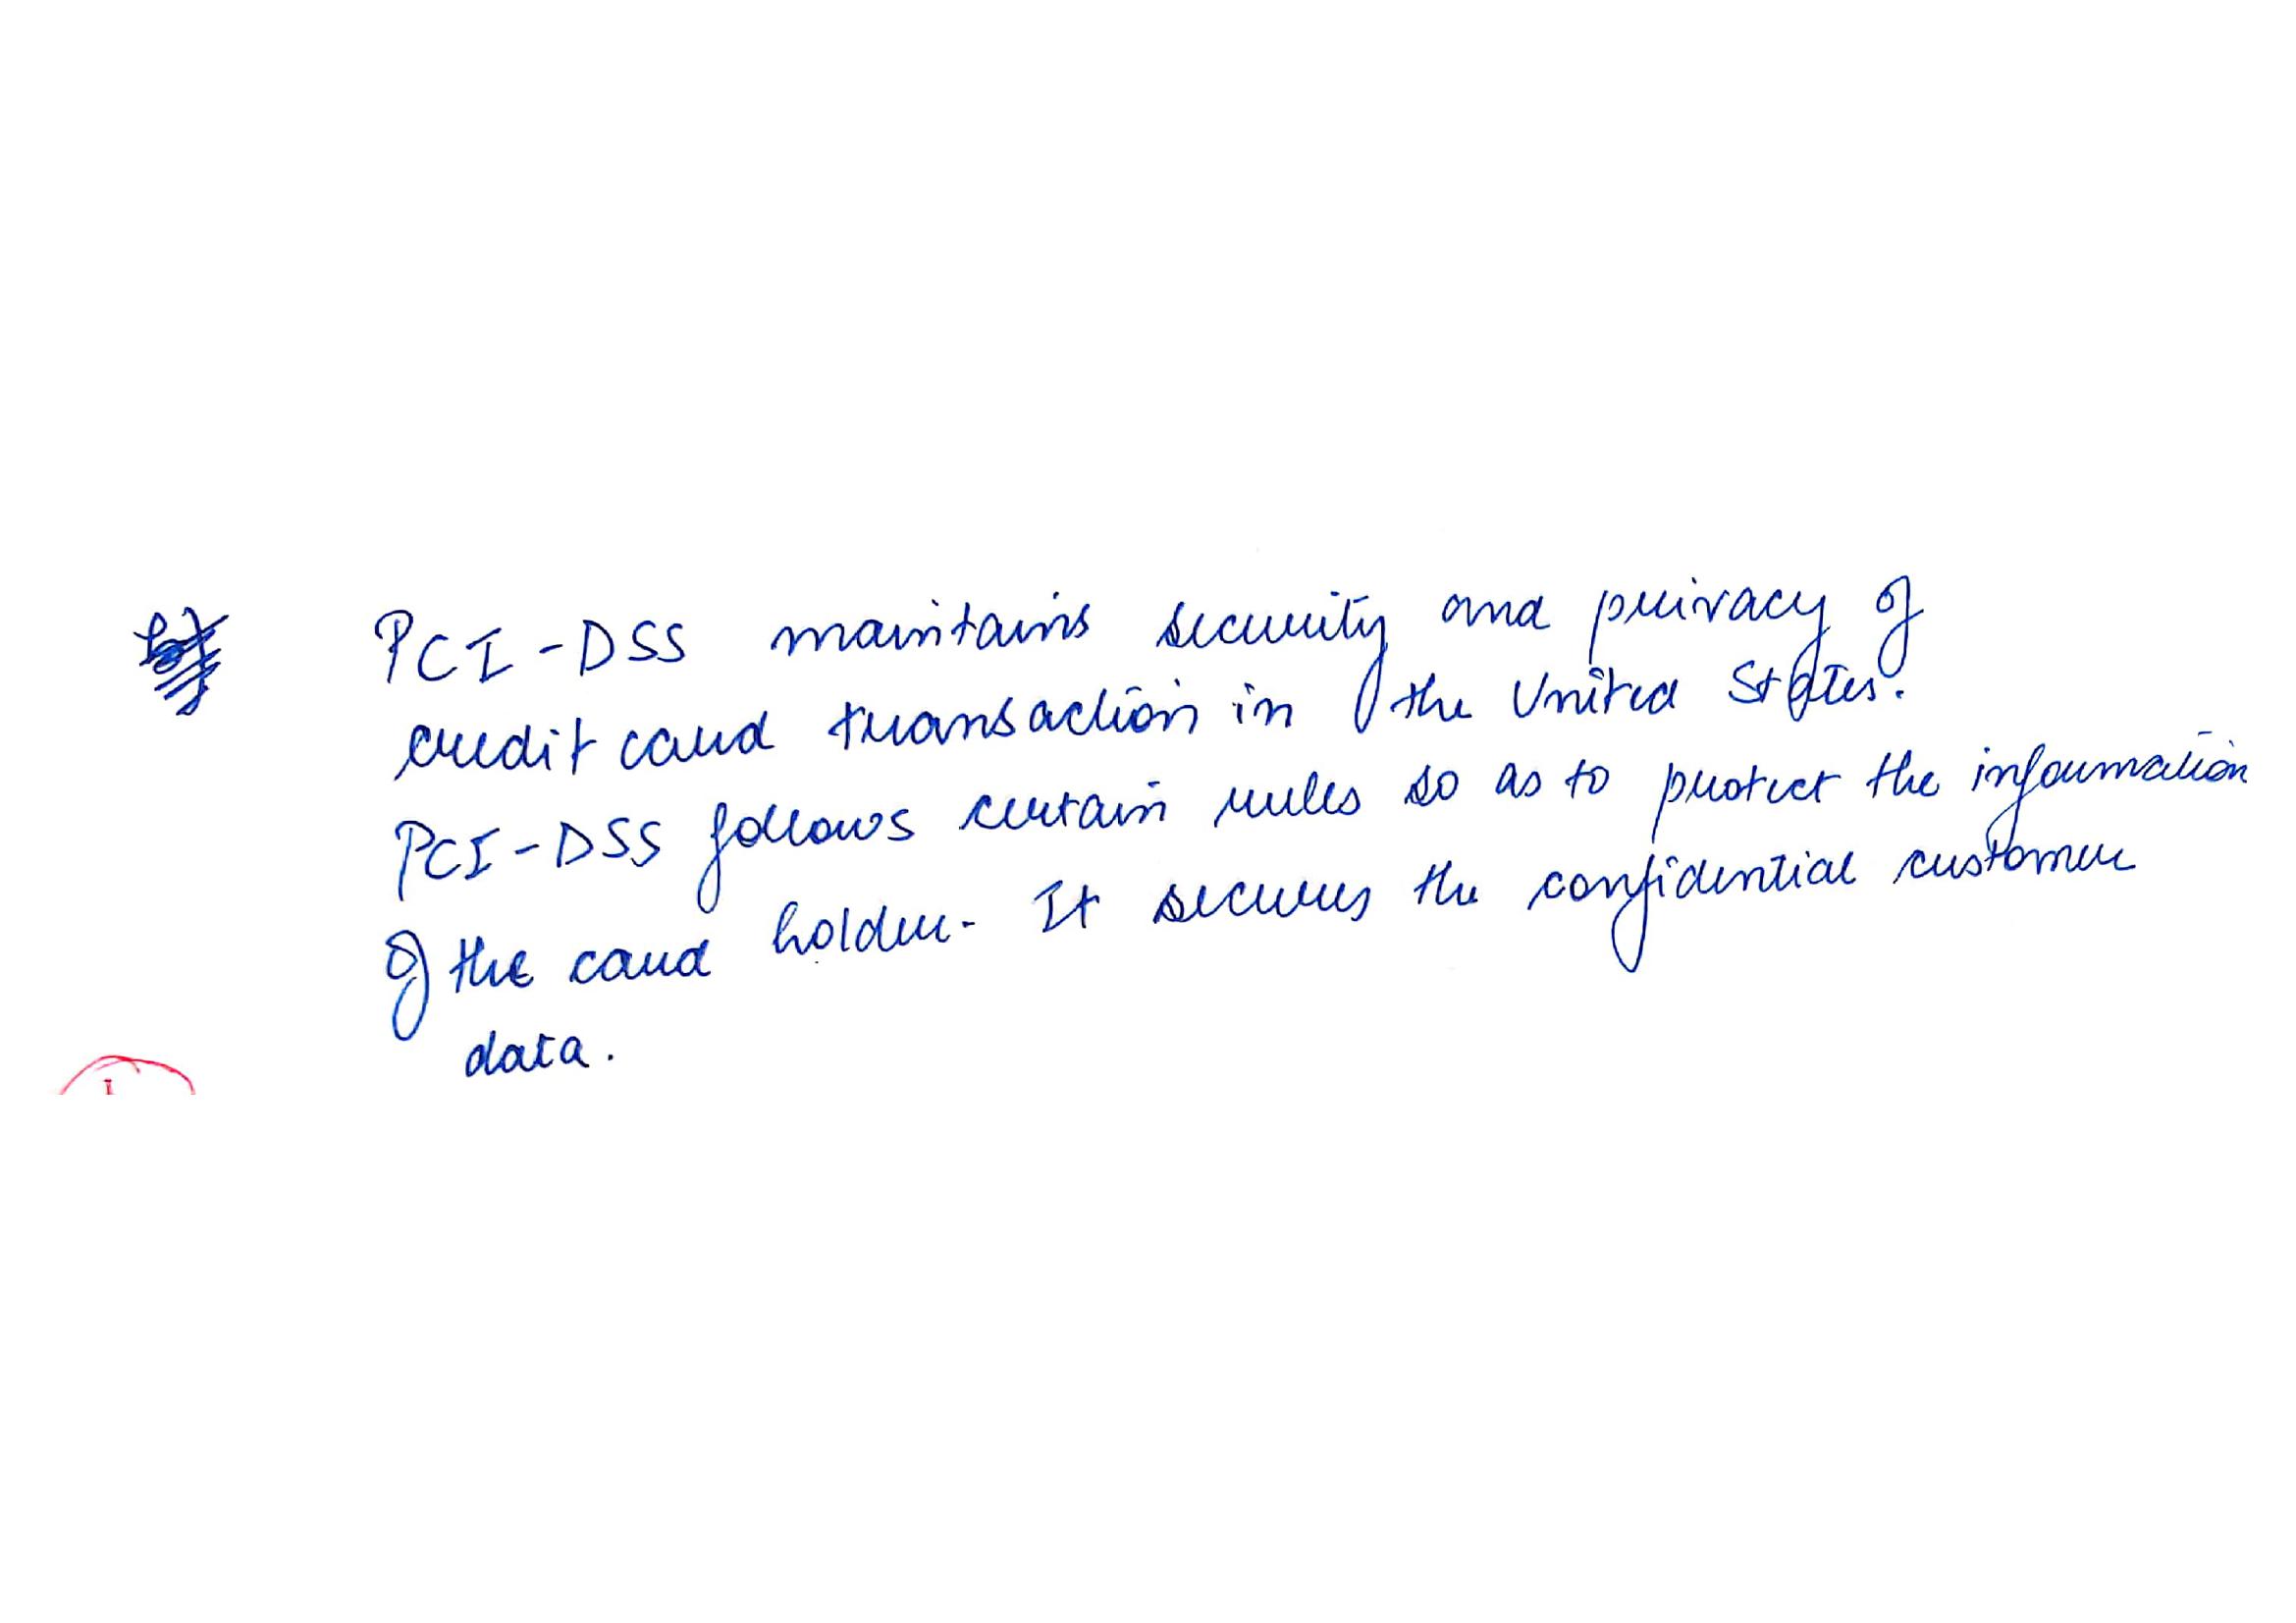 PCI-DSS maintains security and privacy of
credit card transaction in the United States.
PCI-DSS follows certain rules so as to protect the information
of the card holder. It secures the confidential customer
data.